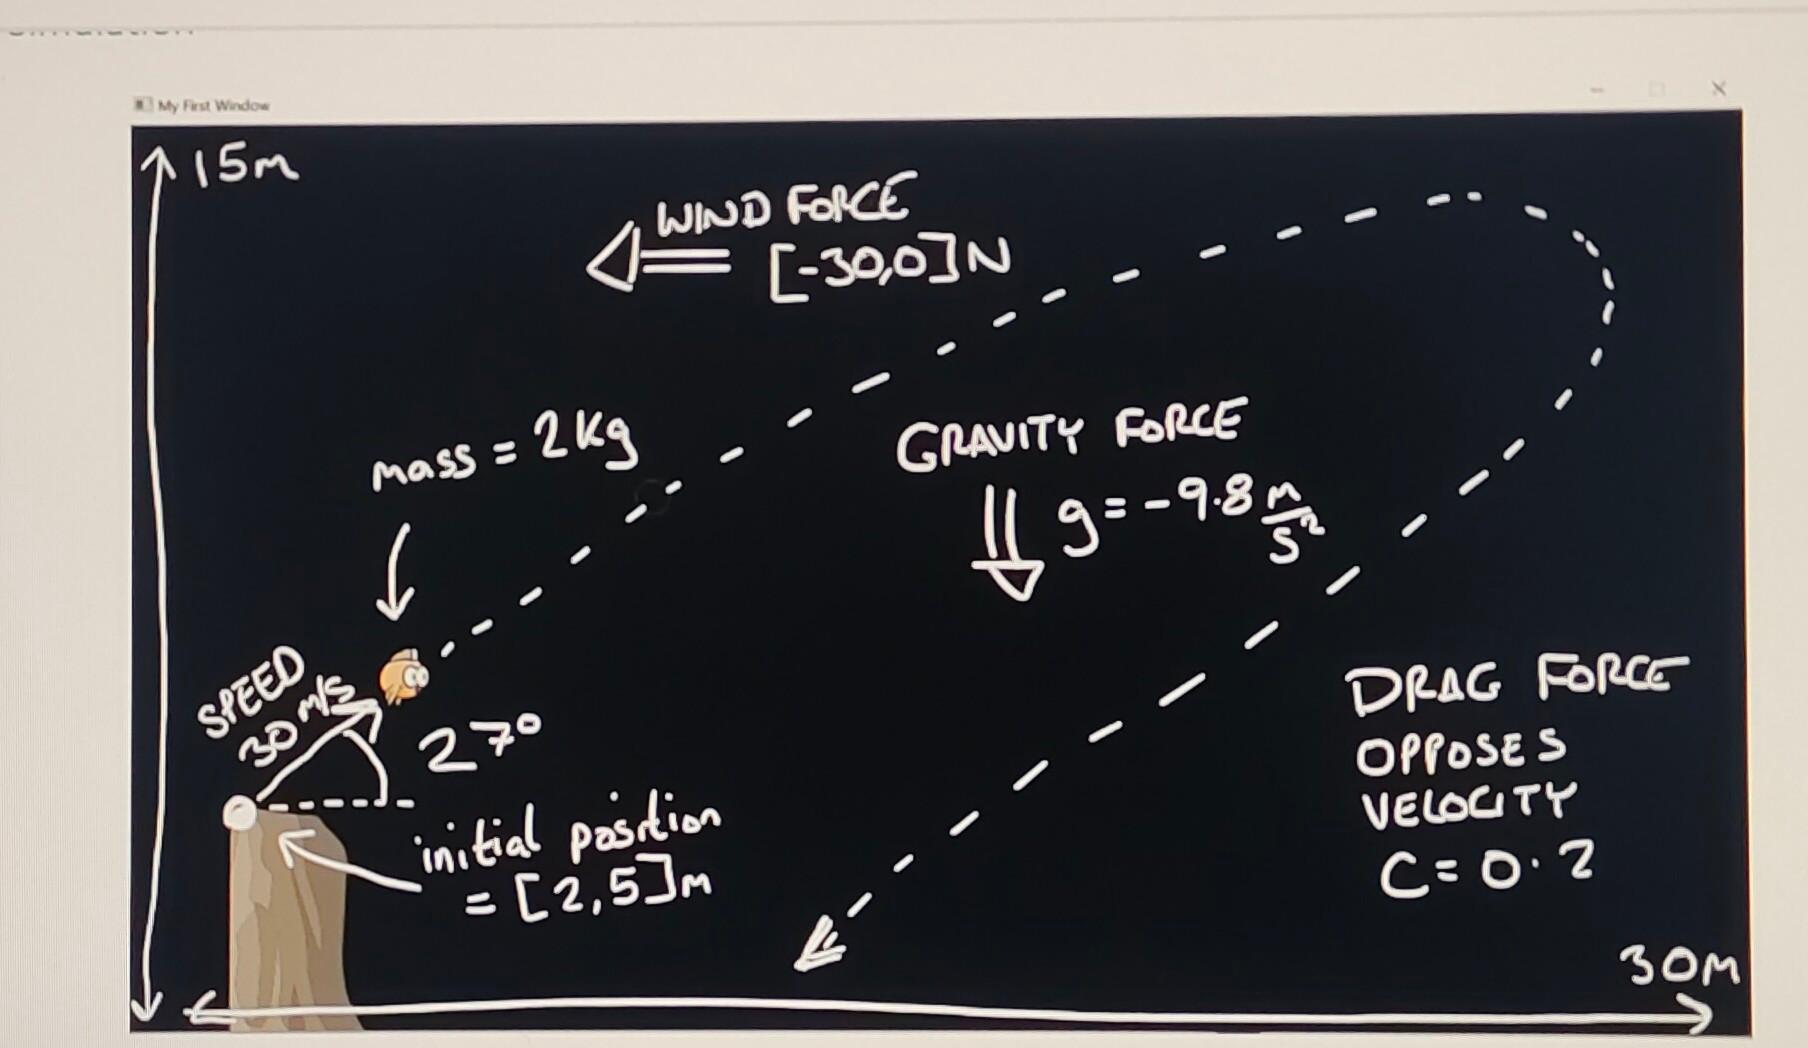 My First Window
15m
WIND FORCE
[-30,0]N
mass = 2Kg
GRAVITY FORCE
g = -9.8 m/s²
SPEED
30 m/s
27°
initial position
= [2,5]m
DRAG FORCE
OPPOSES
VELOCITY
C = 0.2
30M